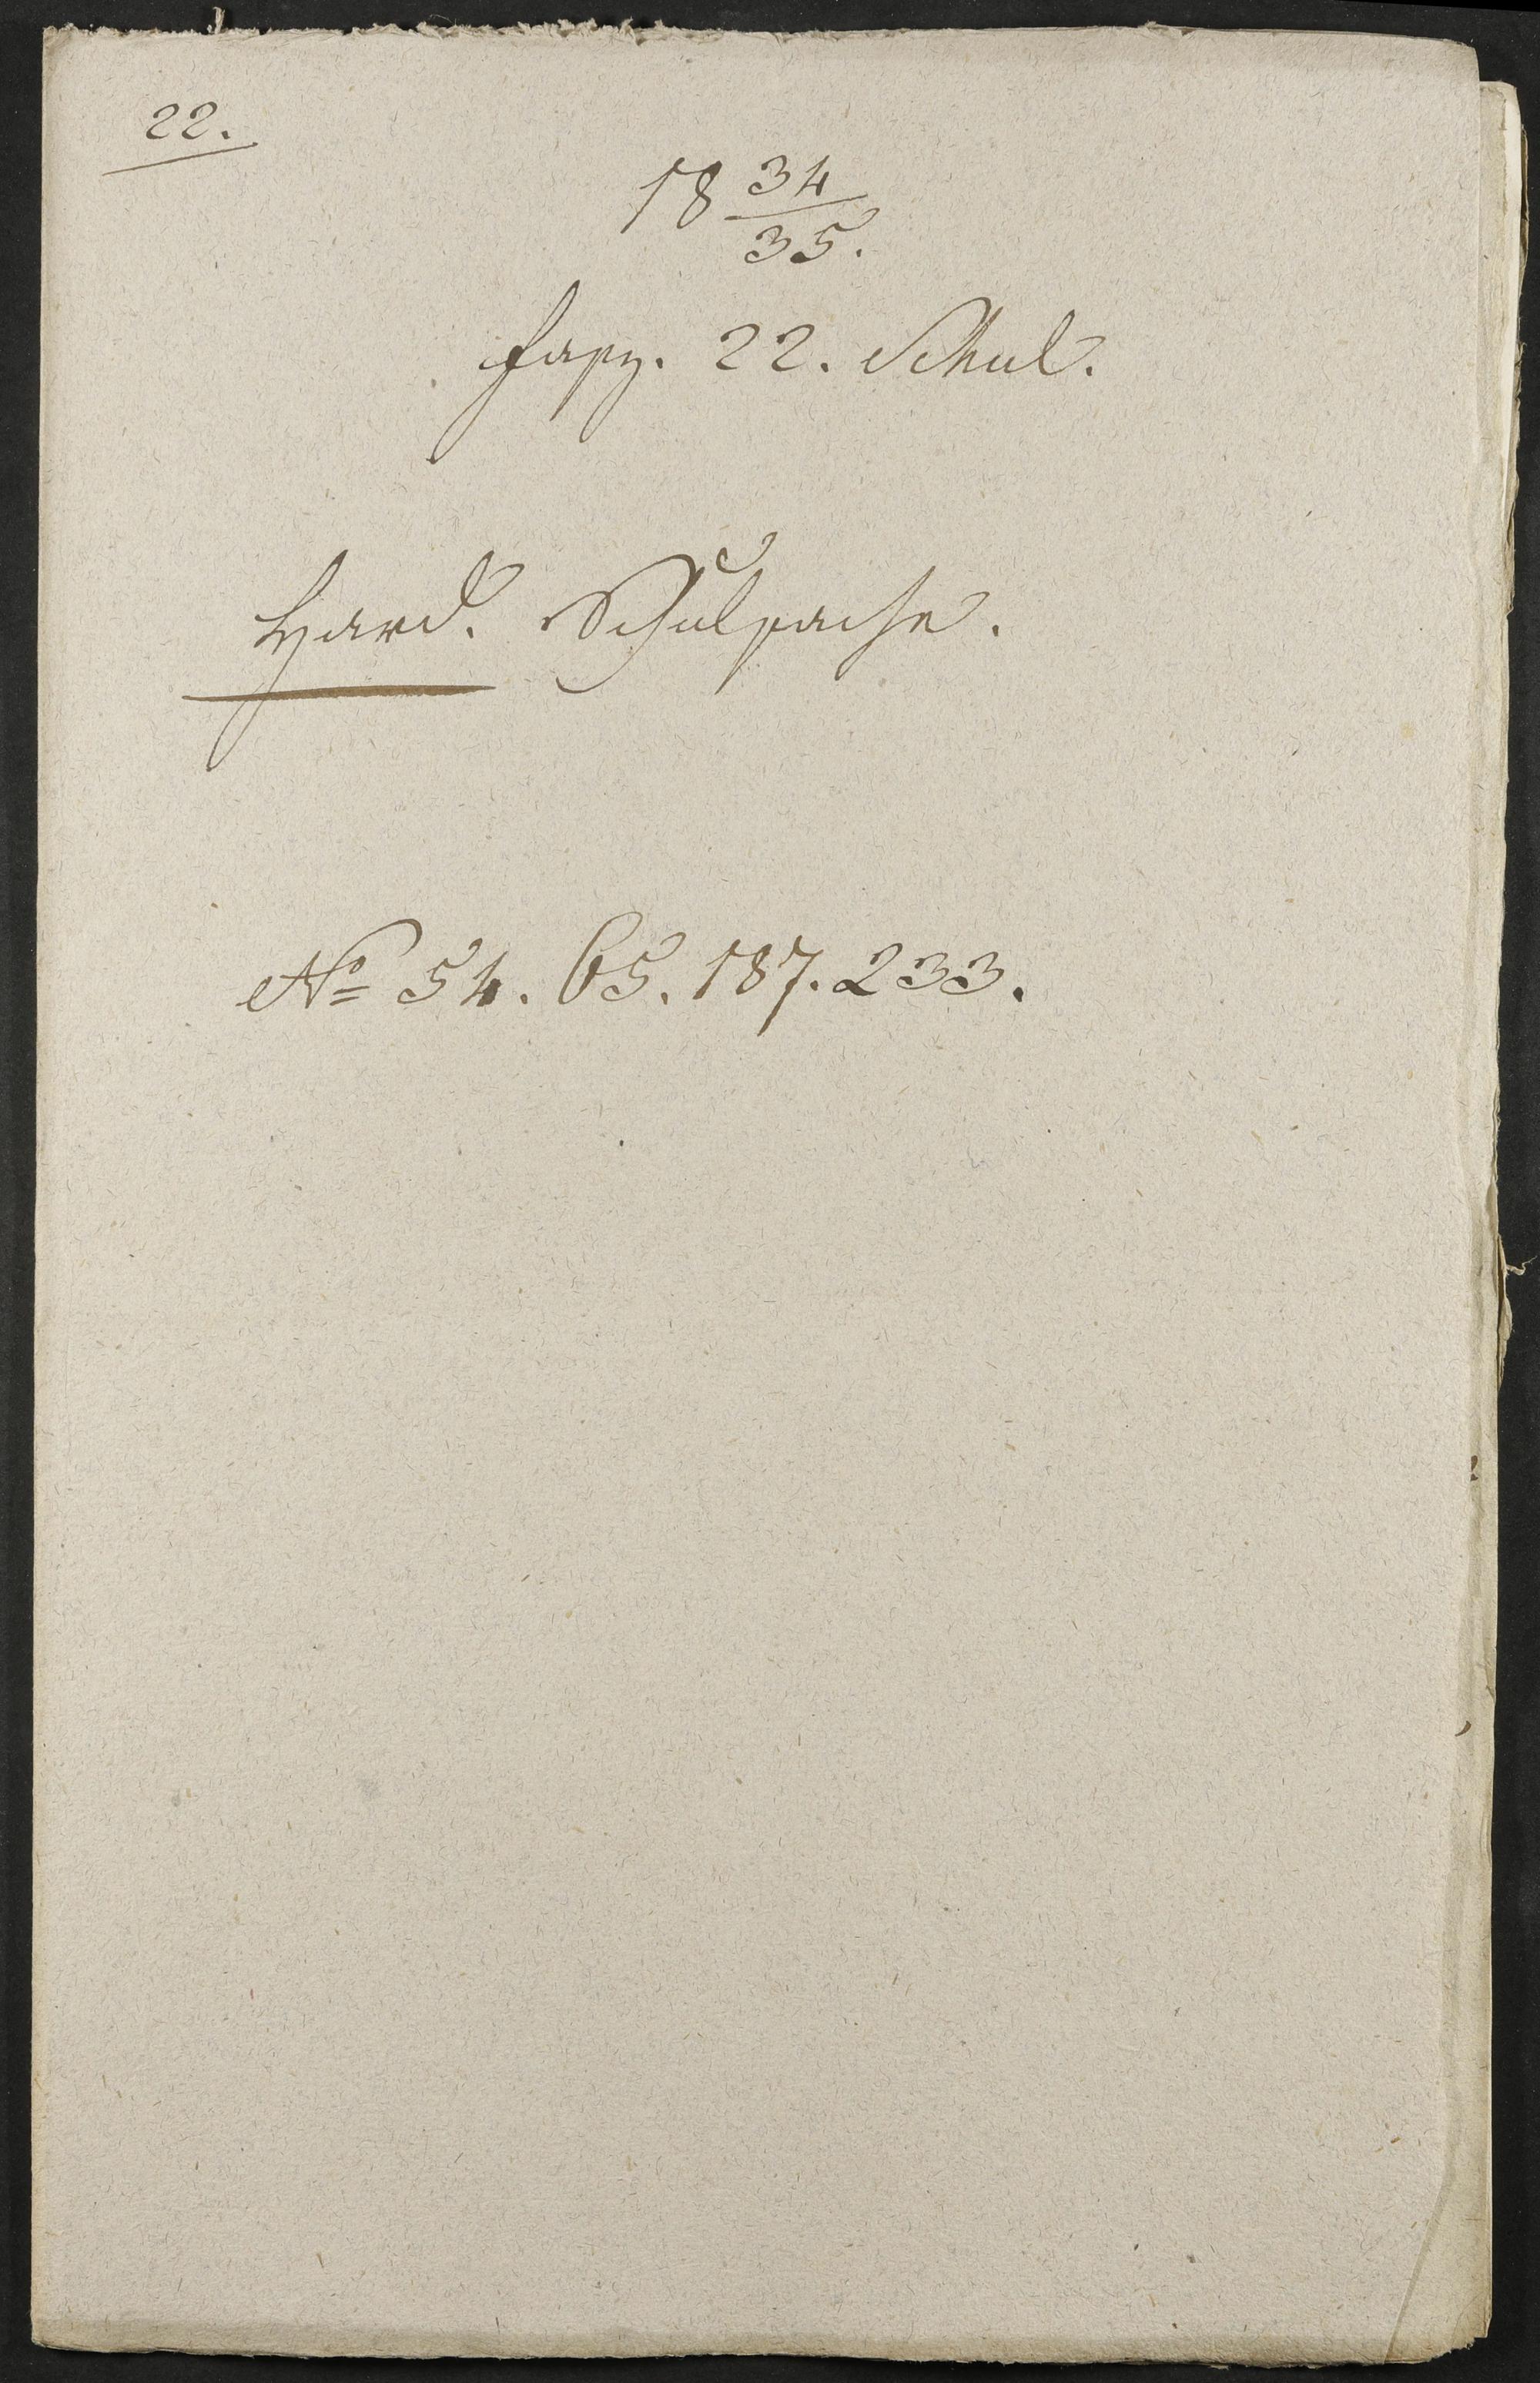 22.
18 34/35.
Fasz. 22. Schul.
Hard. Schulsache.
No 54. 65. 187. 233.